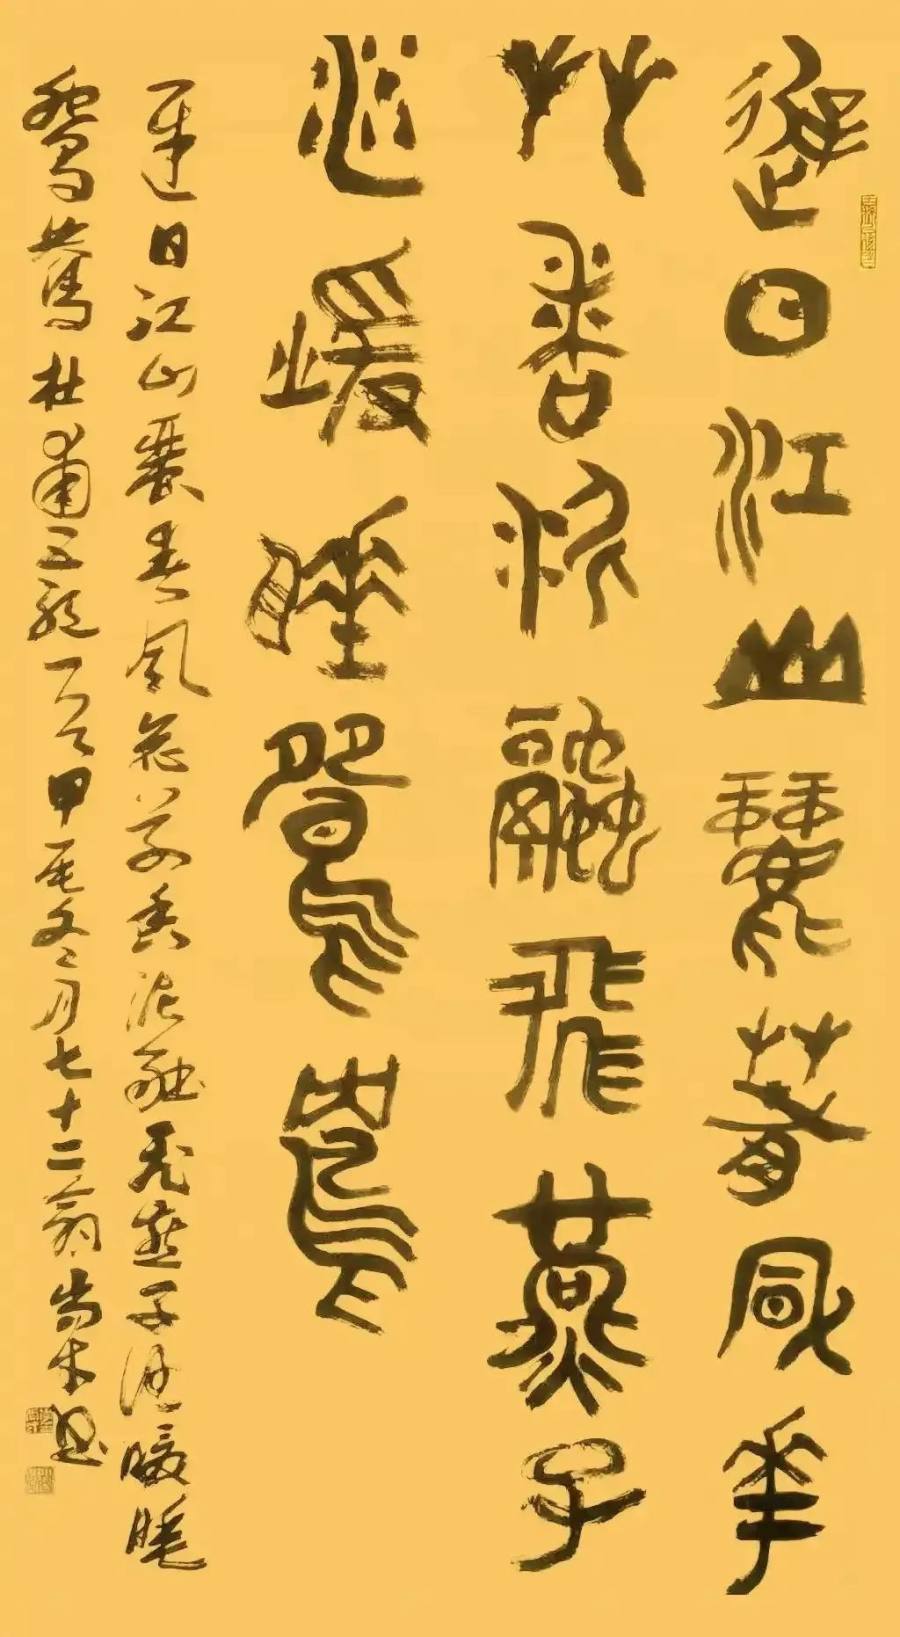 遲日江山麗春風花
艸香泥融飛燕子
沙暖睡鴛鴦
遲日江山麗春風花草香泥融飛燕子沙暖睡
鴛鴦杜甫五絕一首甲辰冬月七十二翁尚木